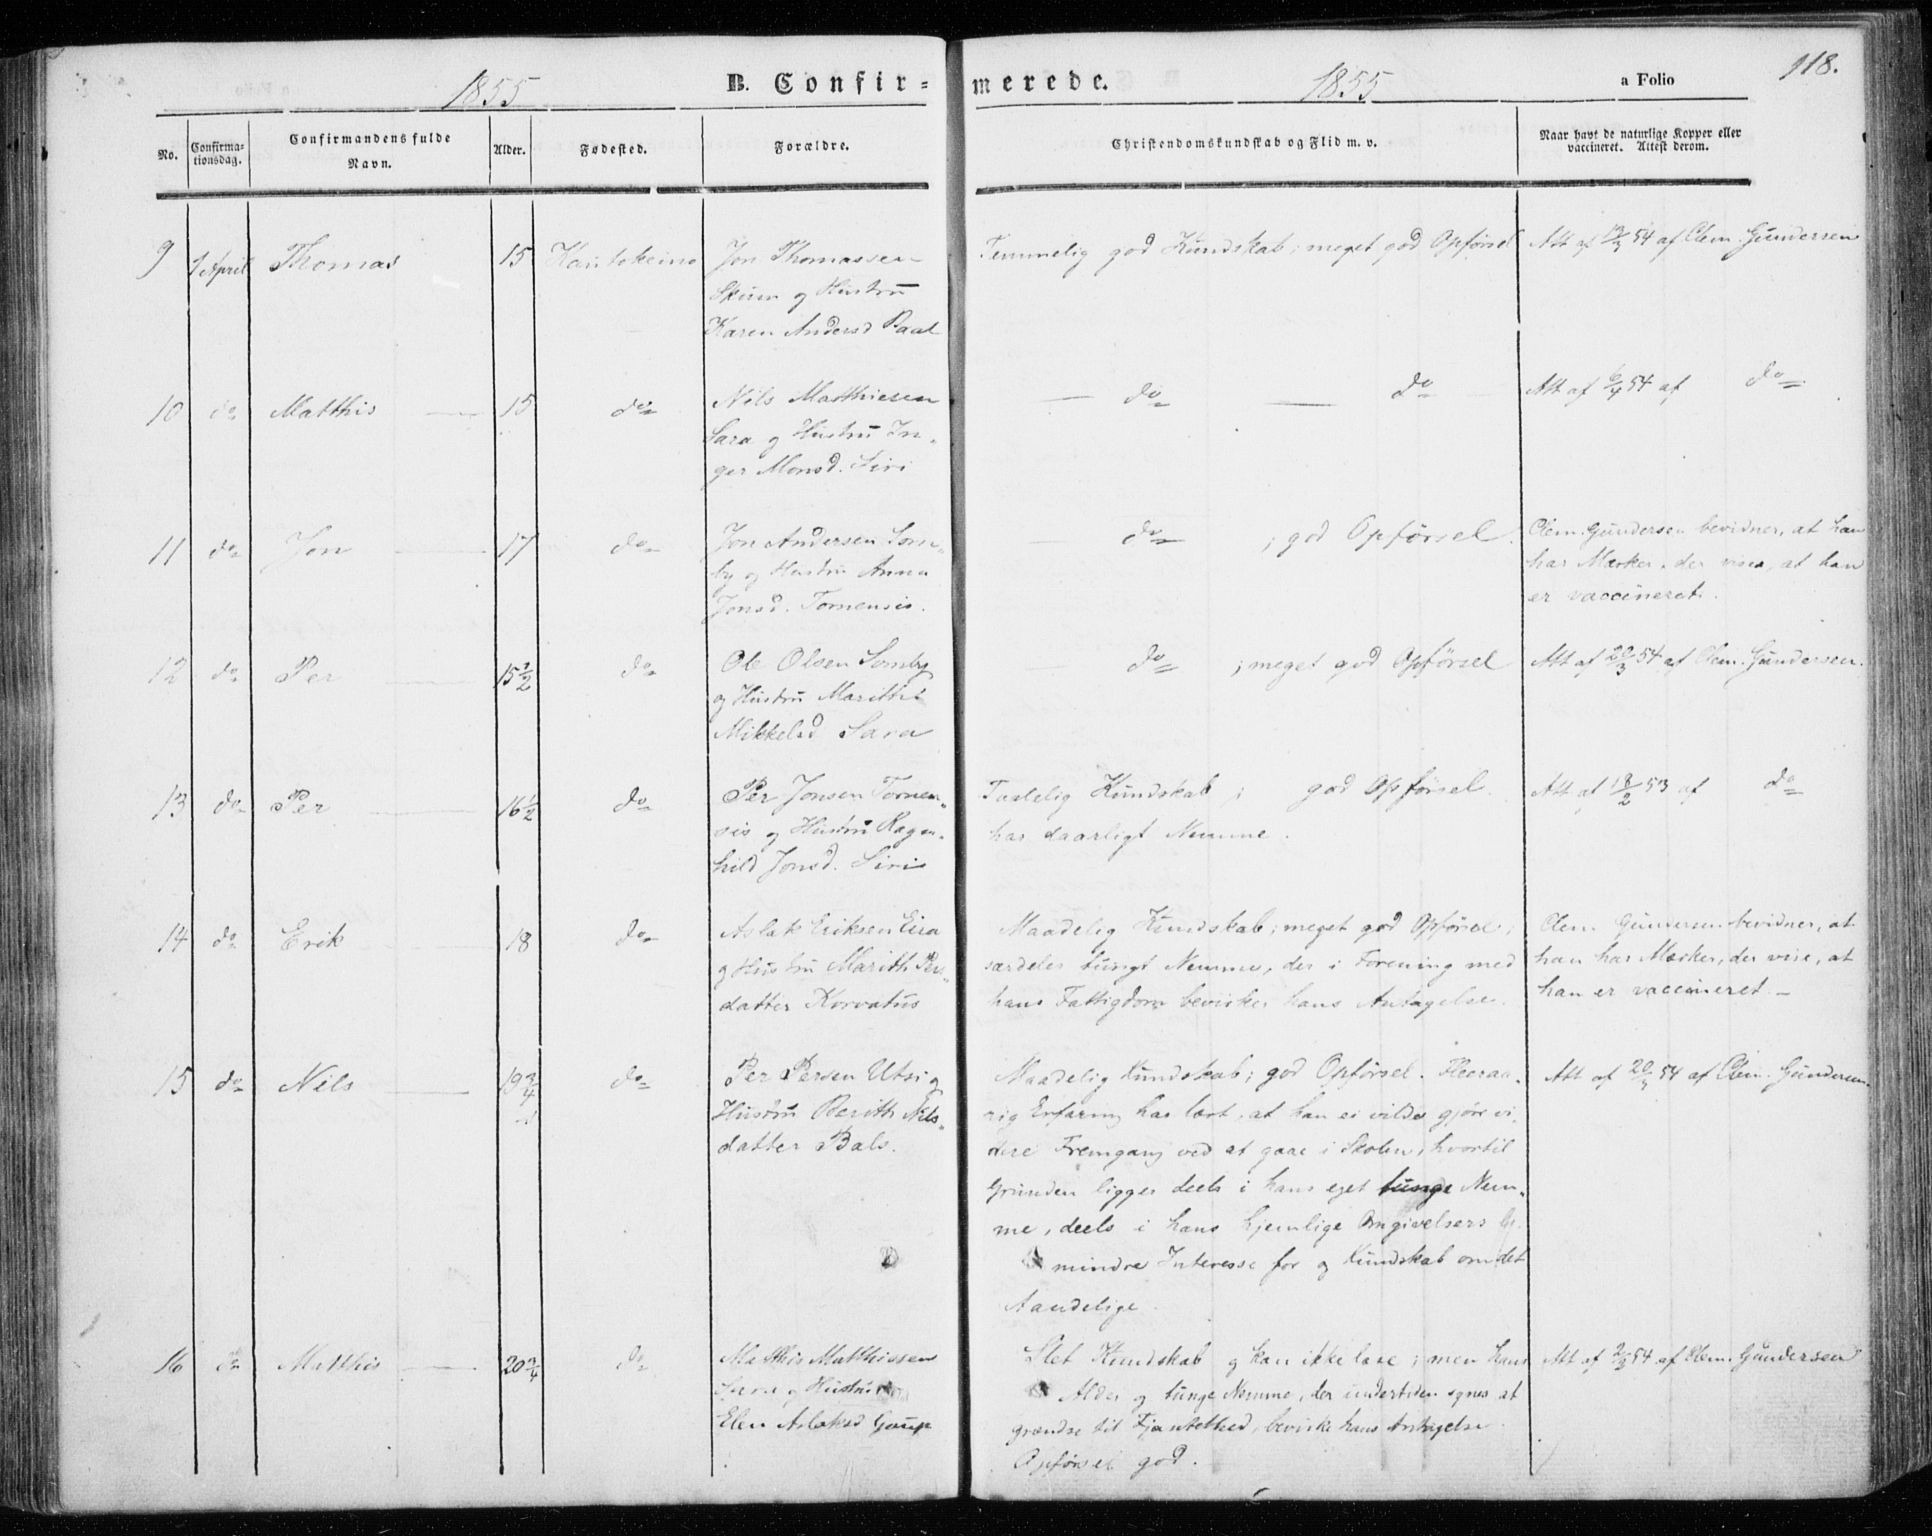 1855 B. Confir= merede. 1855 a Folio 118.
No. Confirma-tionsdag. Confirmandens fulde Navn. Alder. Fødested. Forældre. Christendomskundskab og Flid m. v. Naar havt de naturlige Kopper eller vaccineret. Attest derom.
9 1 April Thomas 15 Kautokeino Jon Thomassen Temmelig god Kundskab; meget god Opførsel Att af 19/3 54 af Clem. Gundersen
Skum og Hustru
Karen Andersd Baal
10 do Matthis 15 do Nils Matthiesen do do Att af 6/4 54 af do
Sara og Hustru In-
ger Monsd. Siri
11 do Jon 17 do Jon Andersen Som- do ; god Opførsel. Clem. Gundersen bevidner, at han
by og Hustru Anna har Mærker, der vise, at han
Jonsd. Tornensis. er vaccineret.
12 do Per 15 1/2 do Ole Olsen Somby do ; meget god Opførsel Att af 20/3 54 af Clem. Gundersen.
og Hustru Marithe
Mikkelsd Sara
13 do Per 16 1/2 do Per Jonsen Tornen- Taalelig Kundskab ; god Opførsel. Att af 18/2 53 af do
sis og Hustru Ragn- har daarligt Nemme.
hild Jonsd. Siri
14 do Erik 18 do Aslak Eriksen Eira Maadelig Kundskab; meget god Opførsel; Clem Gundersen bevidner, at
og Hustru Marith Pers- særdeles tungt Nemme, der i Forening med han har Mærker, der vise, at
datter Korvatus hans Fattigdom bevirker hans Antagelse. han er vaccineret.
15 do Nils 19 3/4 do Per Persen Utsi og Maadelig Kundskab; god Opførsel. Fleeraa- Att af 20/3 54 af Clem. Gundersen.
Hustru Berith Nils- rig Erfaring har lært, at han ei vilde gjøre vi-
datter Bals. dere Fremgang ved at gaae i Skolen, hvortil
Grunden ligger deels i hans eget tunge Nem-
me, deels i hans hjemlige Omgivelsers
mindre Interesse for og Kundskab om det
Aandelige.
16 do Matthis 20 3/4 do Matthis Matthissen Slet Kundskab og kan ikke læse; men hans Att af 54 af Clem. Gundersen
Sara og Hustru Alder og tunge Nemme, der undertiden synes at
Elen Aslaksd Gaup grændse til Fjantethed, bevirke hans Antagelse
Opførsel god.